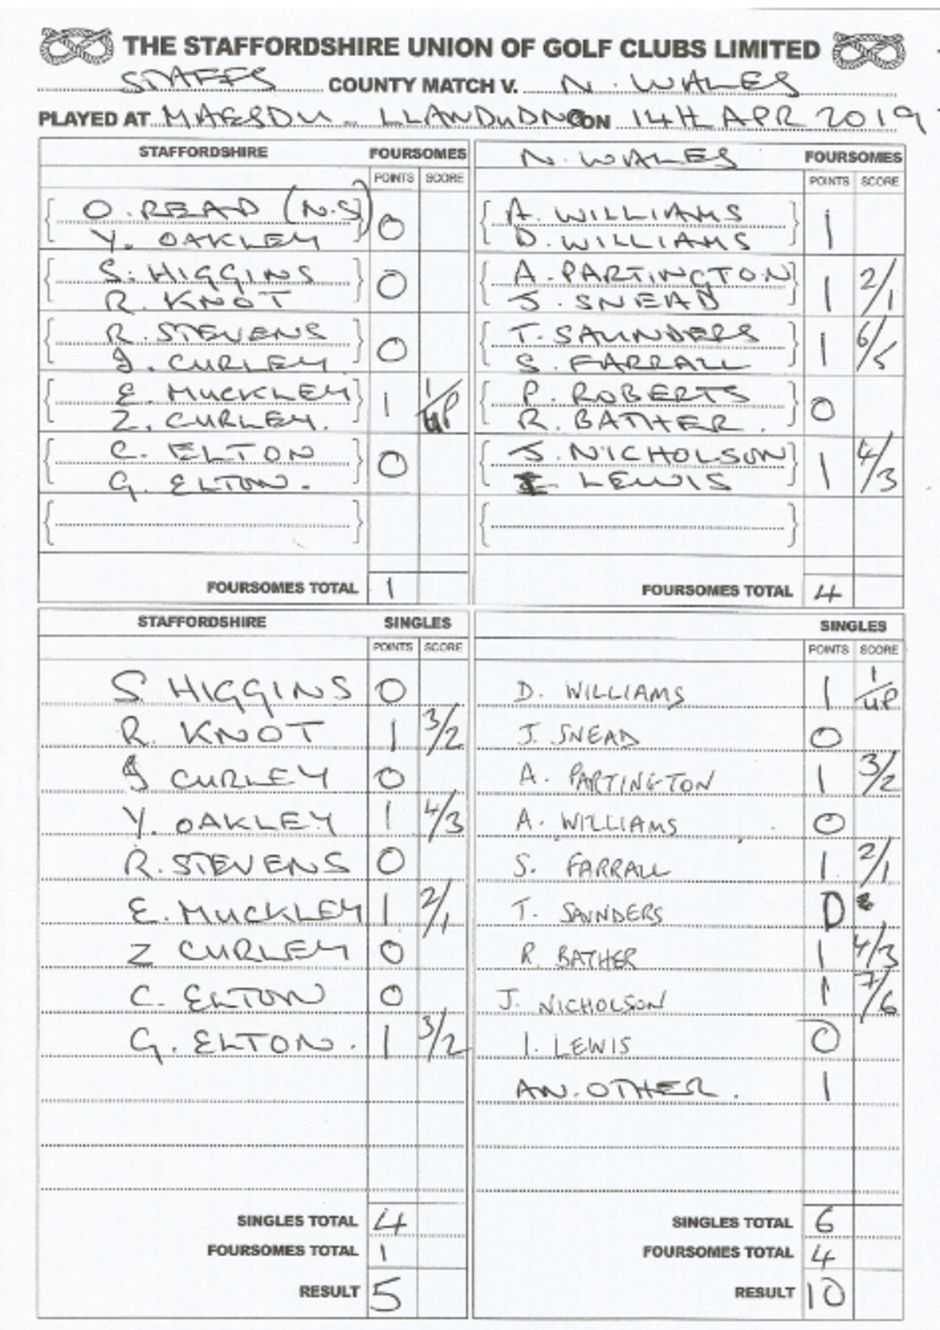 THE STAFFORDSHIRE UNION OF GOLF CLUBS LIMITED
STAFFS COUNTY MATCH V. N. WALES
PLAYED AT MAESDU - LLANDUDNO ON 14TH APR 2019
STAFFORDSHIRE FOURSOMES N. WALES FOURSOMES
POINTS SCORE POINTS SCORE
O. READ (N.S) 0 A. WILLIAMS 1
Y. OAKLEY D. WILLIAMS
S. HIGGINS 0 A. PARTINGTON 1 2/1
R. KNOT J. SNEAD
R. STEVENS 0 T. SAUNDERS 1 6/5
J. CURLEY S. FARRALL
E. MUCKLEY 1 1/UP P. ROBERTS 0
Z. CURLEY. R. BATHER.
C. ELTON 0 J. NICHOLSON 1 4/3
G. ELTON. I. LEWIS
FOURSOMES TOTAL 1 FOURSOMES TOTAL 4
STAFFORDSHIRE SINGLES SINGLES
POINTS SCORE POINTS SCORE
S HIGGINS 0 D. WILLIAMS 1 1/UP
R. KNOT 1 3/2 J. SNEAD 0
J CURLEY 0 A. PARTINGTON 1 3/2
Y. OAKLEY 1 4/3 A. WILLIAMS 0
R. STEVENS 0 S. FARRALL 1 2/1
E. MUCKLEY 1 2/1 T. SAUNDERS 0
Z CURLEY 0 R. BATHER 1 4/3
C. ELTON 0 J. NICHOLSON 1 7/6
G. ELTON. 1 3/2 I. LEWIS 0
AN. OTHER. 1
SINGLES TOTAL 4 SINGLES TOTAL 6
FOURSOMES TOTAL 1 FOURSOMES TOTAL 4
RESULT 5 RESULT 10